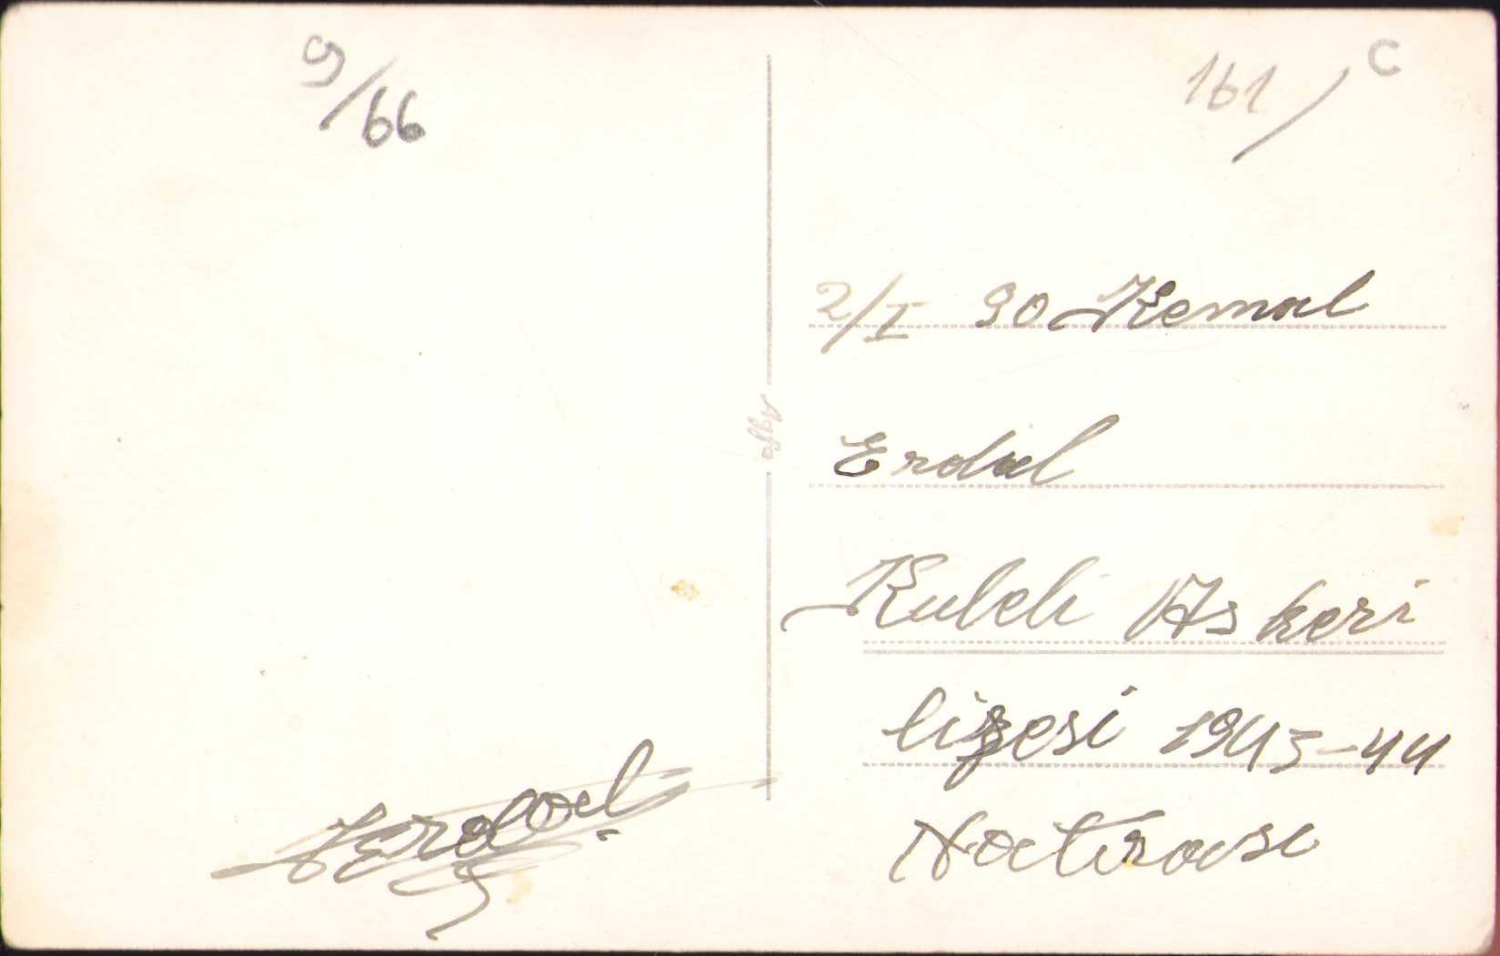 9/66
161/C
2/I 90 Kemal
Erdal
Kuleli Askeri
lisesi 1943-44
Hatırası
KErdal
Agfa